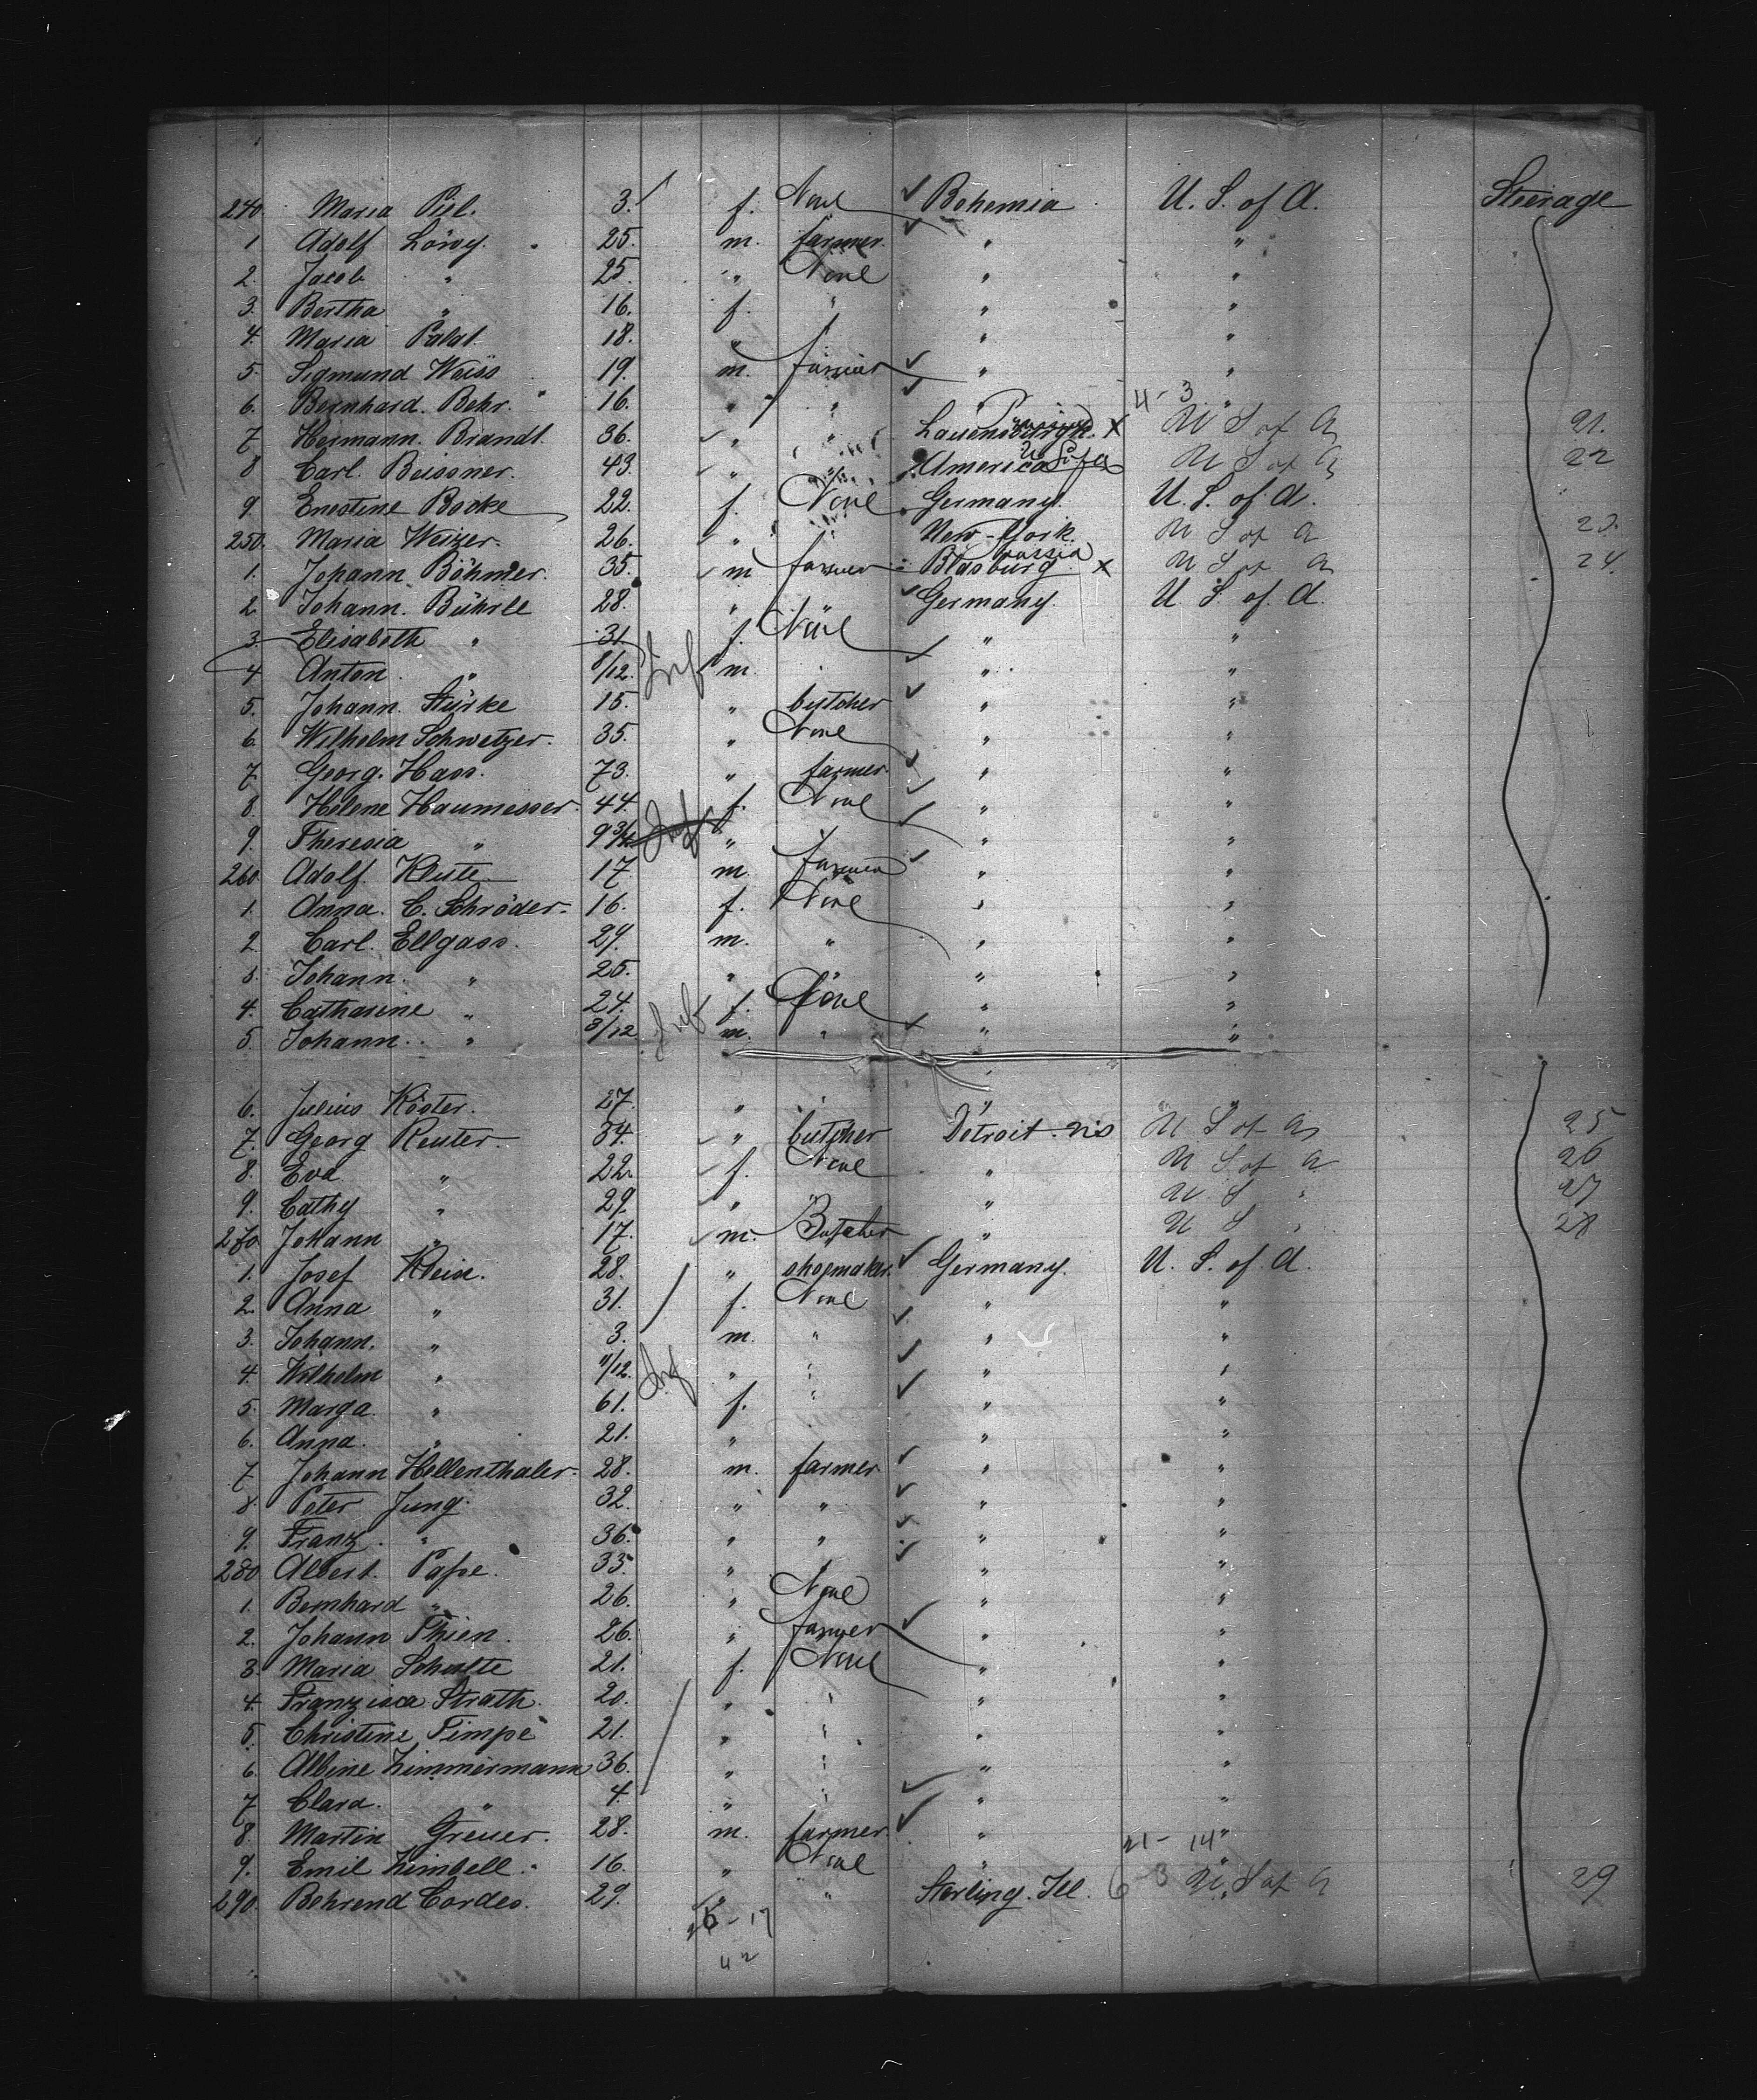 240. Maria Piel. 3. f. None Bohemia U. S. of A. Steerage
1 Adolf Löwy. 25. m. farmer. " "
2. Jacob " 25. " None " "
3. Bertha " 16. f. " " "
4. Maria Palat. 18. " " "
5. Sigmund Weiss 19. m. farmer " "
6. Bernhard. Behr. 16. " " " 4-3 "
7. Hermann. Brandt. 36. " " U S of A 21.
8 Carl. Beissner. 43. " America U S of A U S of A 22
9 Enestine Bocke 22. f. None Germany. U. S. of A.
250. Maria Weizer. 26. " " New-York. U S of A 23.
1. Johann Böhmer. 35. m farmer Blasburg. Russia X U S of A 24.
2 Johann. Bührle 28. " " Germany. U. S. of. A.
3 Elisabeth " 31 f. None " "
4 Anton. " 8/12. Inf m. " "
5. Johann. Stürke 15. " butcher " "
6. Wilhelm Schwetzer. 35. " None " "
7. Georg. Hass. 73. " farmer. " "
8. Helene Haumesser. 44. f. None " "
9. Theresia " 9 3/4 " " "
260. Adolf. Klute 17 m. farmer " "
1. Anna. C. Schröder. 16. f. None " "
2 Carl. Ellgass. 29. m. " " "
3. Johann. " 25. " " "
4. Catharine " 24. f. None " "
5. Johann. " 3/12 Inf m. " " "
6. Julius Köster. 27. " " " "
7. Georg Reuter. 34. " butcher Detroit U S of A 25
8. Eva " 22. f. None " U S of A 26
9. Cathy " 29. " " U S " 27
270 Johann " 17. m. Butcher " U S " 28
1. Josef Klein. 28. " shoemaker. Germany. U. S. of. A.
2. Anna " 31. f. None " "
3. Johann. " 3. m. " " "
4. Wilhelm " 11/12. Inf " " " "
5. Marga. " 61. f. " " "
6. Anna. " 21. " " "
7 Johann Hellenthaler. 28. m. farmer " "
8. Peter Jung. 32. " " " "
9. Franz. " 36. " " " "
280 Albert. Pape. 33. " " "
1. Bernhard " 26. " None " "
2. Johann Thien. 26. " farmer " "
3. Maria Schulte 21. f. None " "
4. Franzisca Strath. 20. " " " "
5. Christine Timpe 21. " " " "
6. Albine Zimmermann 36. " " " "
7 Clara. " 4. " " " "
8. Martin Greuer. 28. m. farmer. " "
21- 14
9. Emil Zimbell. 16. " None " "
290. Behrend Cordes. 29. " " Sterling. Ill. 6 3 U S of A 29
26-17
42